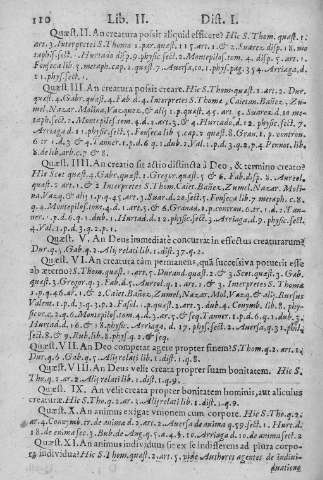 110 Lib. II. Dist. I.
Quæst. II. An creatura possit aliquid efficere? Hic S. Thom. quæst. 1.
art. 3. Interpretes S. Thomæ 1. par. quæst. 115. art. 1. & 2. Suarez disp. 18. me
taphis. sect. Hurtado disp. 9. physic. sect. 2. Montepilos. tom. 4. disp. 5. art. 1.
Fonseca lib. 5. metaph. cap. 2. quæst. 7. Auersa to. 1. phys. pag. 354. Arriaga. d.
11. phys. sect.
Quæst. III. An creatura possit creare. Hic S. Thom. quæst. 1. art. 2. Dur.
quæst. 4. Gabr. quæst. 4. Fab. d. 4. Interpretes S. Thomæ, Caietan. Bañez, Zu-
mel. Nazar. Molina, Vazquez, & alij 1. p. quæst. 45. art. 5. Suarez. d. 20. meta-
ph. sect. Montepilos. tom. 4. d. 2. art. 3. & 4. Hurtad. d. 12. physic. sect. 7.
Arriaga d. 11. physic. sect. 5. Fonseca lib. 5. cap. 2. quæst. 8. Gran. 1. p. contron.
6. tr. 1. d. 3. & 4. Tanner. 1. p. d. 6. q. 1. dub. 2. Val. 1. p. d. 3. q. 2. p. 4. Pennot. lib.
8. de lib. arb. c. 7. & 8.
Quæst. IIII. An creatio sit actio distincta à Deo, & termino creato?
Hic Scot quæst. 4. Gabr. quæst. 1. Gregor. quæst. 5. & 6. Fab. disp. 8. Aureol.
quæst. 1. art. 1. & 2 Interpretes S. Thom. Caiet. Bañez, Zumel, Nazar. Molina,
Vaz. & alij 1. p. q. 45. art. 3. Suar. d. 20. sect. 4. & 5. Fonseca lib. 7. metaph. c. 8.
q. 4. Montepilos. tom. 4. d. 1. art. 5. & 6. Granad. 1. p. contron. 6. tr. 1. d. 2. Tan-
ner. 1. p. d. 6. q. 1. dub. 1. Hurtad. d. 12. physic. sect. 3. Arriaga d. 9. physic. sect.
4. Val. 1. p. d. 3. q. 2. p. 1.
Quæst. V. An Deus immediatè concurrat in effectus creaturarum?
Dur. q. 5. Gab. q. 2. Alij relati lib. 1. dist. 37. q. 2.
Quæst. VI. An creatura tàm permanens, quà successiva potuerit esse
ab æterno? S. Thom. quæst. 1. art. 5. Durand. quæst. 2. & 3. Scot. quæst. 3. Gab.
quæst. 3. Gregor. q. 3. Fab. d. 5. Aureol. q. 1. art. & 3. Interpretes S. Thomæ
1. p. q. 46. ar. 1. & 2. Caiet. Bañez, Zumel, Nazar, Mol, Vazq. & alij, Suarius
Valent. 1. p. d. 3. q. 3. p. 2. Fasol. 1. p. quæst. 2. art. dub. 4. Conymb. lib. 8. phys-
ic. c. 2. q. 6. Montepilos. tom. 4. d. 3. ar. 5. & seq. Tanner. 1. p. d. 6. q. 1. dub. 3.
Hurtad. d. 16. & 18. physic. Arriaga. d. 17. phys. sect. 2. Auersa, q. 31. phil.
sect. 8. & 9. Rub. lib. 8. phys. q. 2. & 6.
Quæst. VII. An Deo competat agere propter finem? S. Thom. q. 2. art. 1.
Dur. q. 6. Gab. q. 5. Alij relati lib. 1. dist. 1. q. 8.
Quæst. VIII. An Deus velit creata propter suam bonitatem. Hic S.
Tho. q. 2. ar. 2. Alij relati lib. 1. dist. 1. q. 9.
Quæst. IX. An velit creata propter bonitatem hominis, aut alicuius
creaturæ. Hic S. Tho. q. 2. ar. 3. Alij relati lib. 1. dist. 1. q. 9.
Quæst. X. An animus exigat vnionem cum corpore. Hic S. Tho. q. 2.
ar. 4. Conymb. tr. de anima d. 2. art. 2. Auersa de anima q. 59. sect. 1. Hurt. d.
18. de anima sec. 3. Bub. de Aug. q. 5. a. 4. 5. 10. Arriaga d. 10. de anima sect. 2
Quæst. XI. An animus indiuisus sit ex se indifferens ad plura corpora
indiuidua? Hic S. Thom. quæst. 2. art. 5. vide Authores agentes de indiui-
duatione